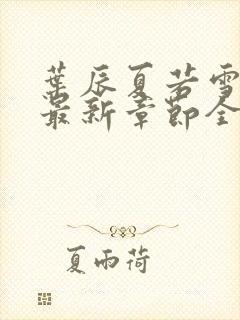 葉辰夏若雪
最新章節全
夏雨荷